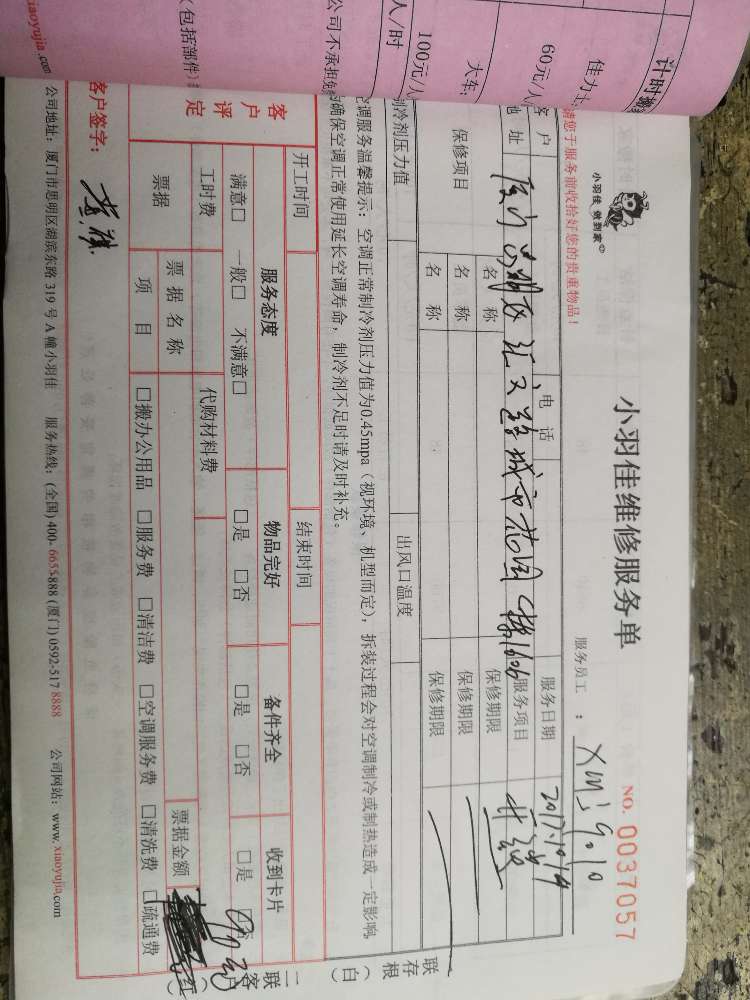 计时
佳力
60元/人
大车:
100元/人
人/时
公司不承担
(包括部件)
xiaoyujia.com
小羽佳 做到家
小羽佳维修服务单
NO. 0037057
请您于服务前收拾好您的贵重物品!
服务员工:
客户
电话
服务日期
2017.10.19
地址
厦门
1606
服务项目
名称
保修期限
保修项目
名称
保修期限
名称
保修期限
制冷剂压力值
出风口温度
空调服务温馨提示:空调正常制冷剂压力值为0.45mpa(视环境、机型而定),拆装过程会对空调制冷或制热造成一定影响
确保空调正常使用延长空调寿命,制冷剂不足时请及时补充。
开工时间
结束时间
客户评定
服务态度
物品完好
备件齐全
收到卡片
满意□ 一般□ 不满意□
□是 □否
□是 □否
□是 □否
工时费
代购材料费
票据
票据名称
票据金额
项目
□搬办公用品 □服务费 □清洁费 □空调服务费 □清洗费 □疏通费
客户签字:
公司地址:厦门市思明区湖滨东路 319 号 A 幢小羽佳 服务热线:(全国) 400-6655-888 (厦门) 0592-517 8888 公司网站:www.xiaoyujia.com
存根联(白)
二联客户(红)